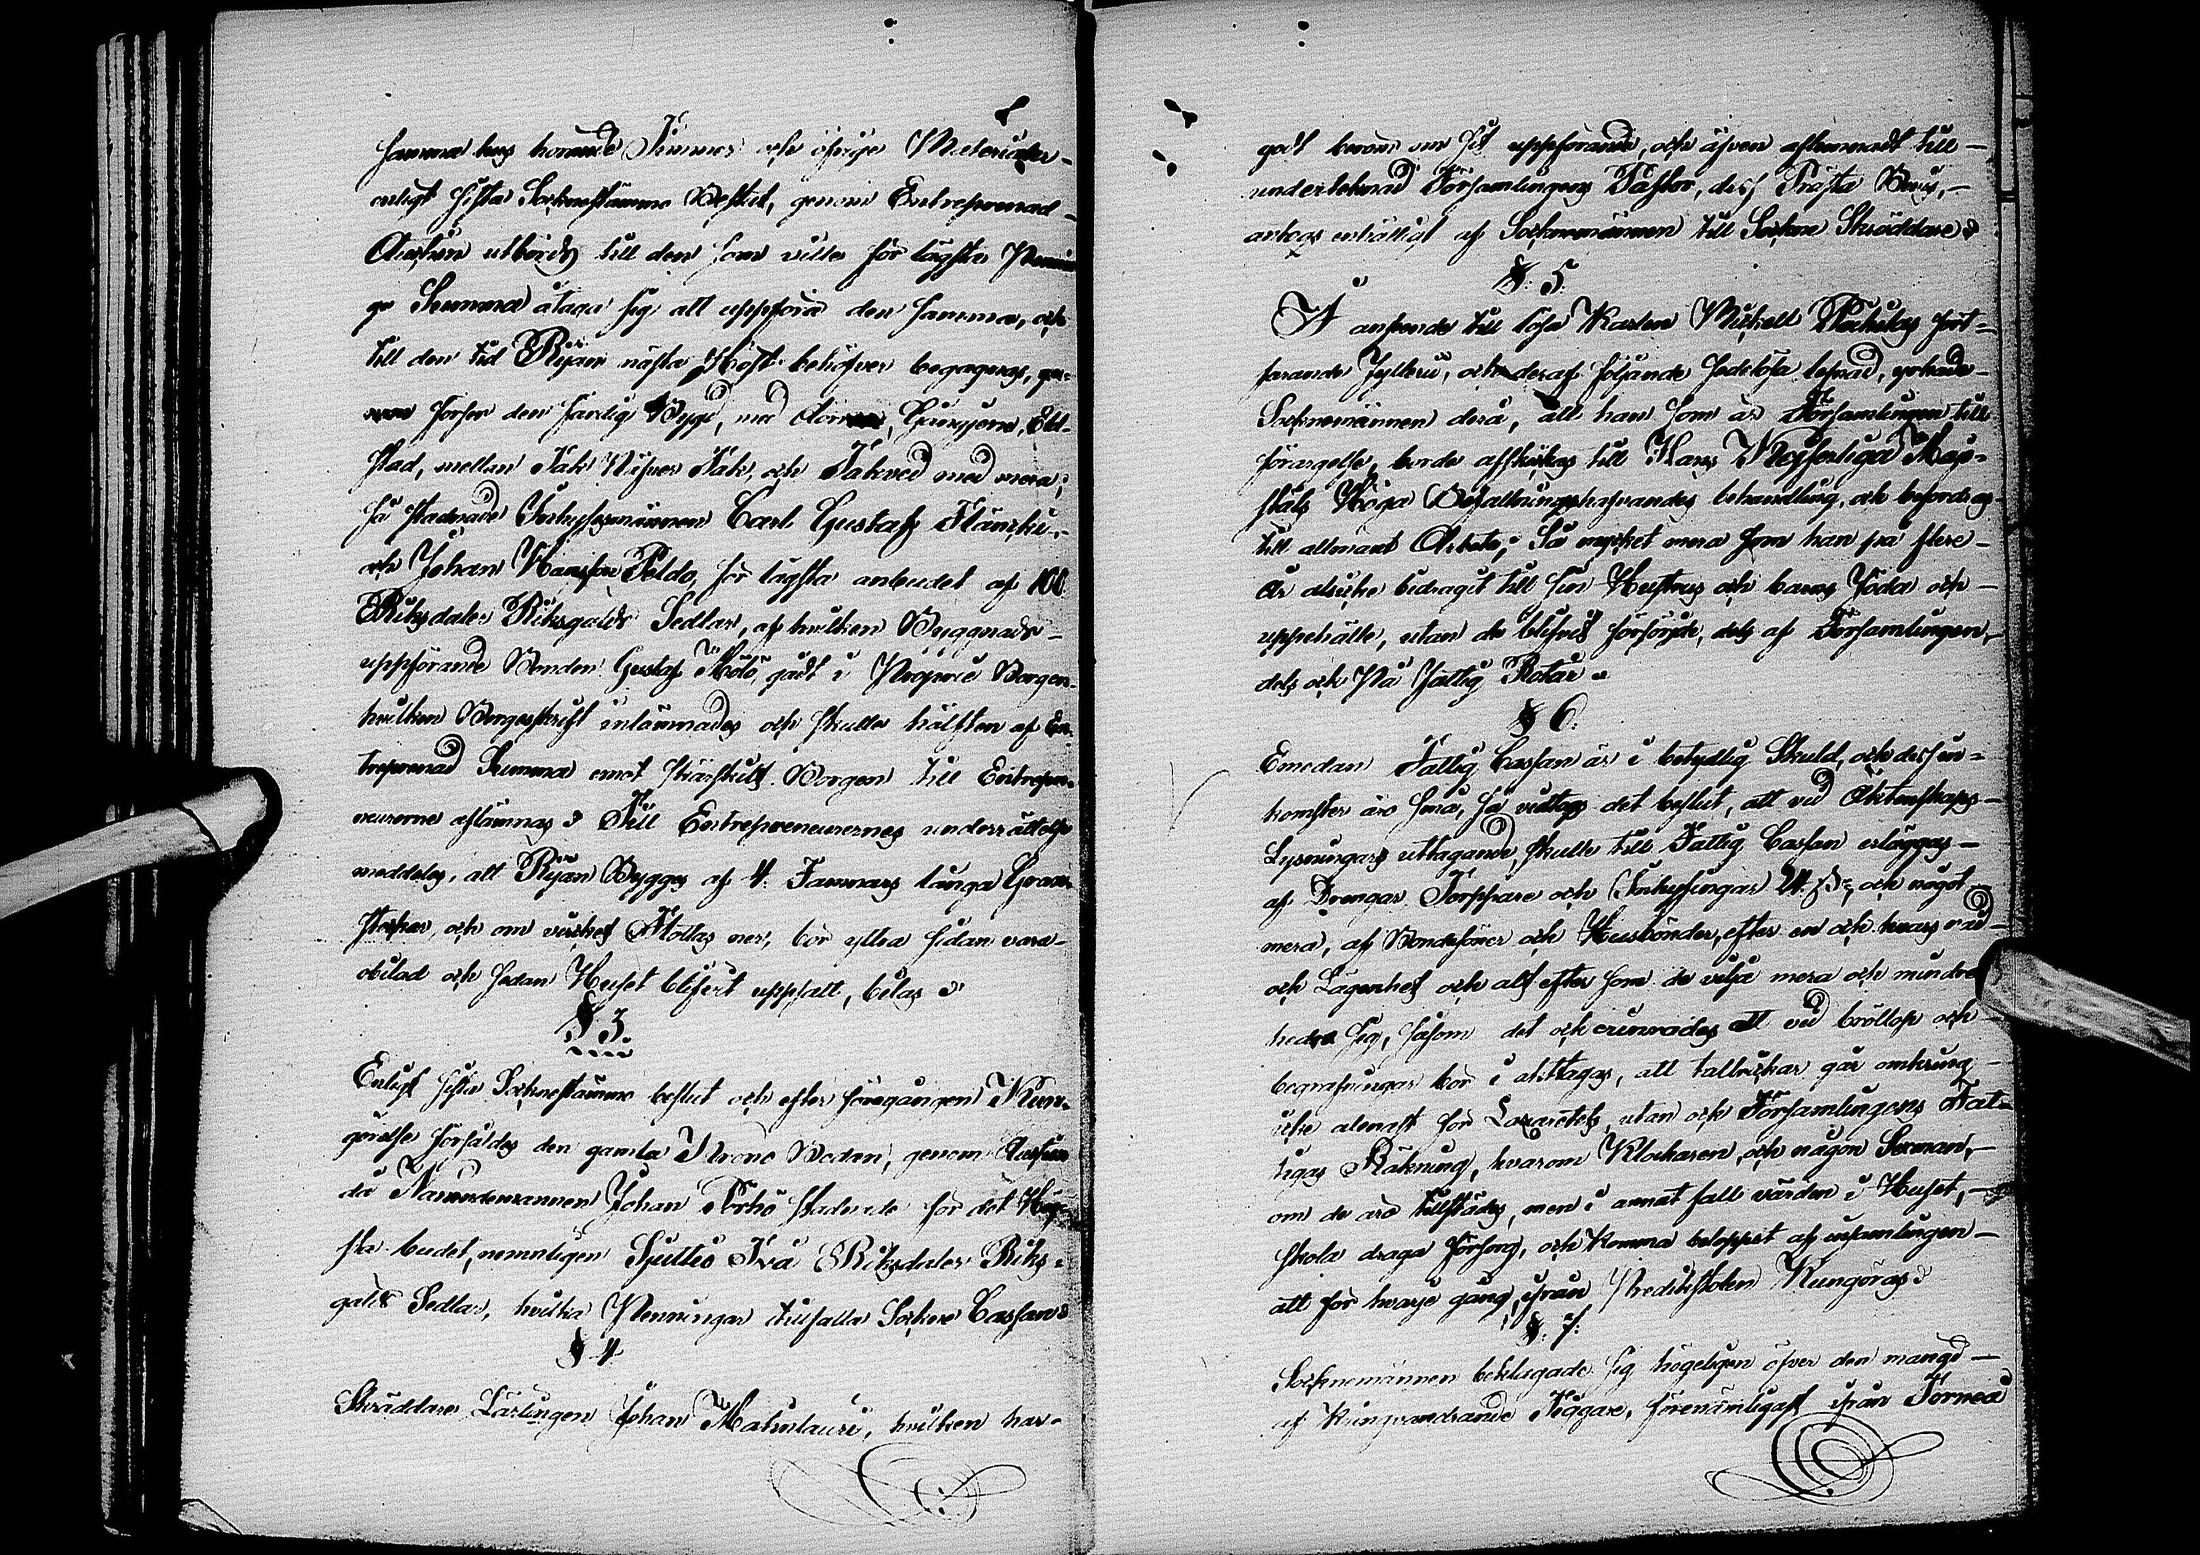 samma hus hörande Timmer och öfrige Materialier
enligt sista Sockenstämmo Beslut, genom Entreprenad
Auction utbjöds till den som ville för lägsta Pennin
ge Summa åtaga sig att uppföra den samma, och
till den tid Rijan nästa Höst behöfver begagnas,
förser den färdig Bygd, med dörrar, Eld-
stad, mellan Tak Näfver Tak, och Takved med mera;
så stadnade Inhysesmännen Carl Gustafs Flänki
och Johan Hansson Peldo, för lägsta anbudet af 100
Riksdaler Riksgälds Sedlar, af hvilken Byggnads
uppförande Bonden Gustaf Mölö, gådt i Proprie Borgen
hvilken Borgesskrift inlämnades och skulle hälften af En-
treprenad Summa emot skärskild Borgen till Entrepre-
neurerne aflämnas. Till Entrepreneurernes underrättelse
meddeles, att Rijan Bygges af 4 Famnars långa Gran
stockar, och om virket Flöttas ner, bör yttra sidan vara
obilad och sedan Huset blifvit uppsatt, bilas
§ 3.
Enligt sista Sockenstämmo beslut och efter föregången Kun-
görelse försåldes den gamla Krono Boden, genom Auction
då Nämndemannen Johan Törhö stadnade för det Hög-
sta budet, nemnligen Sjuttio Två Riksdaler Riks-
gälds Sedlar, hvilka Penningar tillfalla Sockne Cassan
§ 4
Skräddare Lärlingen Johan Matinlauri, hvilken har
godt beröm om sit uppförande, och äfven aflemnadt till
undertecknad Församlingens Pastor, dess Prästa Bevis,
antogs enhälligt af Socknemännen till Sockne Skräddare
§. 5.
I anseende till losa Karlen Mickell Pockilas fort-
farande fylleri, och deraf följande sedelösa lefnad, yrkade
Socknemännen derå, att han som är Församlingen till
förargelse, borde affskickas till Hans Kejserliga Maje-
stäts Höga Befallningshafvandes behandling, och befordras
till allmänt Arbete, Så mycket mera som han på flere
år alsicke bidragit till sin Hustrus och barns föda och
uppehälle, utan de blifvit försörjde, dels af Församlingen,
dels och På Fattig Rotar
§ 6.
Emedan Fattig Cassan är i betydlig Skuld, och dess in-
komster äro små, så vidtogs det beslut, att vid Äktenskaps
Lysningars uttagande, skulle till Fattig Cassan erläggas
af Drengar Torppare och Inhysingar 24. sk. och något
mera, af Bondesöner och Husbönder, efter en och hvars råd
och Lägenhet och alt efter som de vilja mera och mindre
hedra sig, såsom det och erinrades att vid bröllop och
begrafningar bör i akttagas, att tallrickar går omkring
icke alenast för Lazarettet, utan och Församlingens Fat-
tigas Räkning, hvarom Klockaren, och någon Sexman,
om de äro tillstädes, men i annat fall värden i Huset,
skola draga försorg, och komma beloppet af insamlingen
att för hvarje gång, ifrån Predikstolen Kungöras
§. 7.
Socknemännen beklagade sig högeligen öfver den mängd
af Kringvandrande Tiggare, förenämligast ifrån Torneå